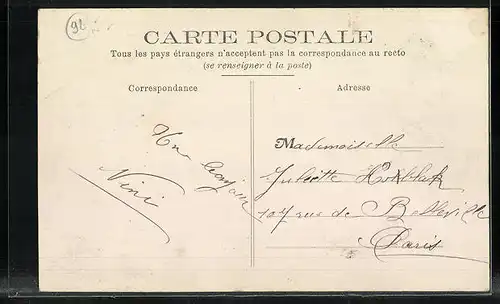 94
CARTE POSTALE
Tous les pays étrangers n'acceptent pas la correspondance au recto
(se renseigner à la poste)
Correspondance
Adresse
Un bonjour
Nini
Mademoiselle
Juliette
107 rue de Belleville
Paris